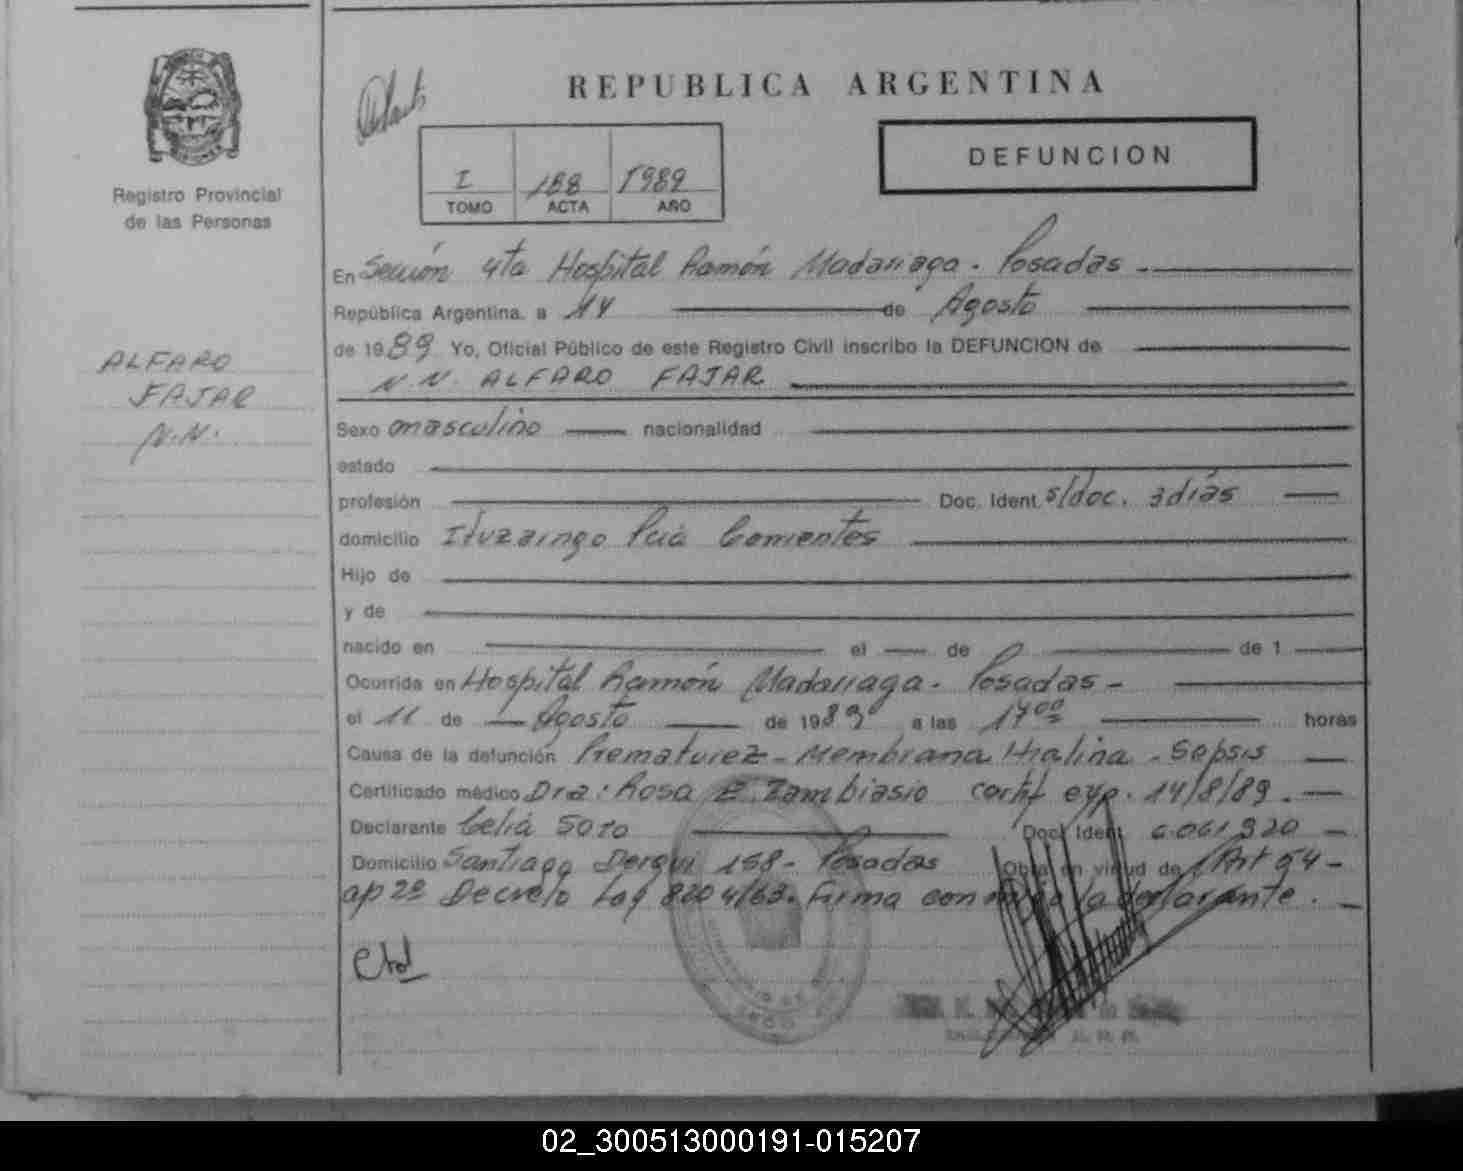 REPUBLICA ARGENTINA
DEFUNCION
I 188 1989
TOMO ACTA AÑO
Registro Provincial
de las Personas
ALFARO
FAJAR
N.N.
En Sección 4ta Hospital Ramón Madariaga - Posadas -
República Argentina, a 14 de Agosto
de 1989 Yo, Oficial Público de este Registro Civil inscribo la DEFUNCION de
N.N. ALFARO FAJAR
Sexo masculino nacionalidad
estado
profesión Doc. Ident. s/doc. 3 días
domicilio Ituzaingo Pcia Corrientes
Hijo de
y de
nacido en el de de 1
Ocurrida en Hospital Ramón Madariaga - Posadas -
el 11 de Agosto de 1989 a las 17 00 horas
Causa de la defunción Prematurez - Membrana Hialina - Sepsis
Certificado médico Dra: Rosa E. Zambiasio certif exp. 14/8/89.
Declarante Celia Soto Doc. Ident. 6.061.920
Domicilio Santiago Derqui 158 - Posadas Obra en virtud de Art 54 -
ap 2º Decreto Ley 8204/63. Firma con la declarante.
02_300513000191-015207